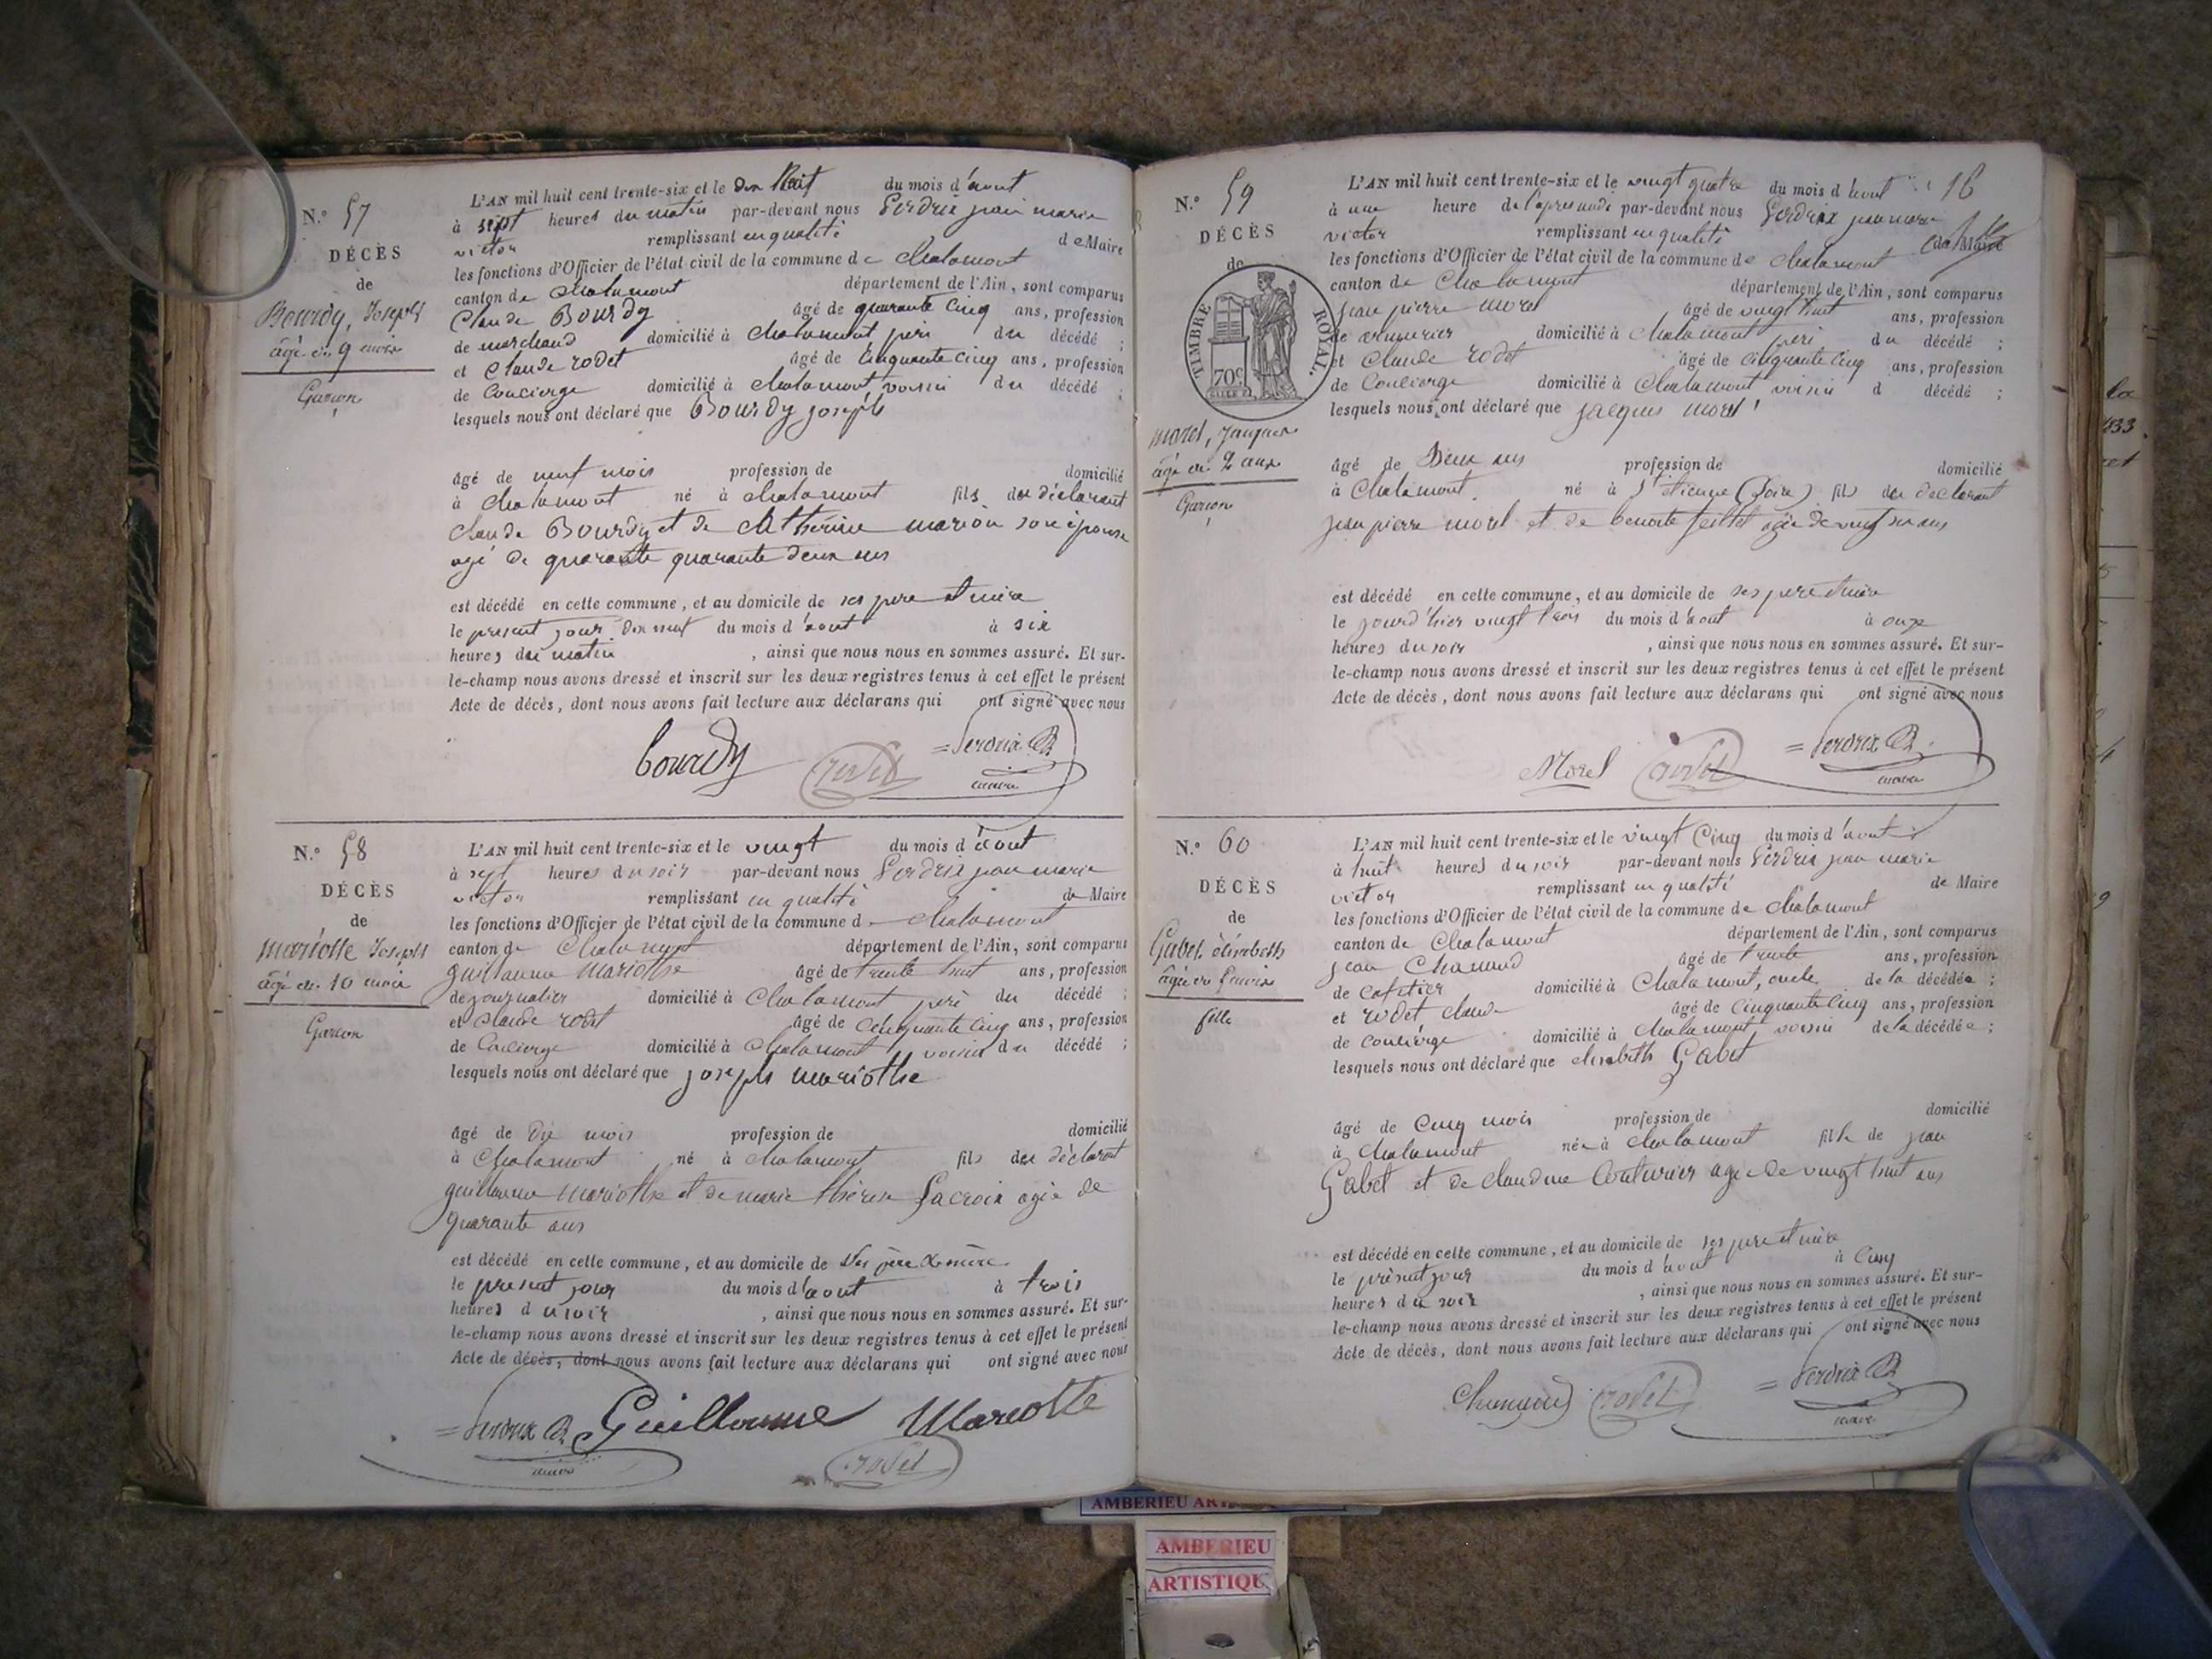 N.° 57
DÉCÈS
de
Bourdy, Joseph
âgé de 9 mois
Garçon
L'AN mil huit cent trente-six et le du mois d'aout
à sept heures du matin par-devant nous Perdrix jean marie
victor remplissant en qualité de Maire
les fonctions d'Officier de l'état civil de la commune de chalamont
canton de chalamont département de l'Ain, sont comparus
Claude Bourdy âgé de quarante cinq ans, profession
de marchand domicilié à chalamont peri du décédé ;
et claude rodet âgé de cinquante cinq ans, profession
de concierge domicilié à chalamont voisin du décédé ;
lesquels nous ont déclaré que Bourdy joseph
âgé de neuf mois profession de domicilié
à chalamont né à chalamont fils du déclarant
claude Bourdy et de Catherine marion son épouse
agé de quarante quarante deux ans
est décédé en cette commune, et au domicile de ses pere et mère
le present jour dix neuf du mois d'aout à six
heures du matin , ainsi que nous nous en sommes assuré. Et sur-
le-champ nous avons dressé et inscrit sur les deux registres tenus à cet effet le présent
Acte de décès, dont nous avons fait lecture aux déclarans qui ont signé avec nous
bourdy rodet Perdrix
maire
N.° 58
DÉCÈS
de
mariotte Joseph
âgé de 10 mois
Garçon
L'AN mil huit cent trente-six et le vingt du mois d'aout
à sept heures du soir par-devant nous Perdrix jean marie
victor remplissant en qualité de Maire
les fonctions d'Officier de l'état civil de la commune de chalamont
canton de chalamont département de l'Ain, sont comparus
guillaume mariothe âgé de trente huit ans, profession
de journalier domicilié à chalamont peri du décédé ;
et claude rodet âgé de cinquante cinq ans, profession
de concierge domicilié à chalamont, voisin du décédé ;
lesquels nous ont déclaré que joseph mariothe
âgé de dix mois profession de domicilié
à chalamont né à chalamont fils du déclarant
guillaume mariothe et de marie thérèse Lacroix agée de
quarante ans
est décédé en cette commune, et au domicile de ses père & mère
le present jour du mois d'aout à trois
heures du soir , ainsi que nous nous en sommes assuré. Et sur-
le-champ nous avons dressé et inscrit sur les deux registres tenus à cet effet le présent
Acte de décès, dont nous avons fait lecture aux déclarans qui ont signé avec nous
Perdrix Guillaume Mariotte
maire rodet
16
N.° 59
DÉCÈS
de
TIMBRE ROYAL.
70c
morel, Jacques
âgé de 2 ans
Garçon
L'AN mil huit cent trente-six et le vingt quatre du mois d'aout
à une heure de l'apres midi par-devant nous Perdrix jean marie
victor remplissant en qualité de Maire
les fonctions d'Officier de l'état civil de la commune de chalamont
canton de chalamont département de l'Ain, sont comparus
jean pierre morel âgé de vingt huit ans, profession
de domicilié à chalamont peri du décédé ;
et claude rodet âgé de cinquante cinq ans, profession
de concierge domicilié à chalamont voisin d décédé ;
lesquels nous ont déclaré que jacques morel
âgé de Deux ans profession de domicilié
à chalamont né à St etienne (Loire) fils du declarant
jean pierre morel et de benoite agée de vingt six ans
est décédé en cette commune, et au domicile de ses pere et mère
le jourd'hier vingt trois du mois d'aout à onze
heures du soir , ainsi que nous nous en sommes assuré. Et sur-
le-champ nous avons dressé et inscrit sur les deux registres tenus à cet effet le présent
Acte de décès, dont nous avons fait lecture aux déclarans qui ont signé avec nous
Morel rodet Perdrix
maire
N.° 60
DÉCÈS
de
Gabet, élisabeth
âgée de 5 mois
fille
L'AN mil huit cent trente-six et le vingt cinq du mois d'aout
à huit heures du soir par-devant nous Perdrix jean marie
victor remplissant en qualité de Maire
les fonctions d'Officier de l'état civil de la commune de chalamont
canton de chalamont département de l'Ain, sont comparus
jean Chanaud âgé de trente ans, profession
de cafetier domicilié à chalamont, oncle de la décédée ;
et rodet claude âgé de cinquante cinq ans, profession
de concierge domicilié à chalamont, voisin de la décédée ;
lesquels nous ont déclaré que elisabeth Gabet
âgé de cinq mois profession de domicilié
à chalamont née à chalamont fille de jean
Gabet et de claudine Couturier agée de vingt huit ans
est décédé en cette commune, et au domicile de ses pere et mère
le présent jour du mois d'aout à cinq
heures du soir , ainsi que nous nous en sommes assuré. Et sur-
le-champ nous avons dressé et inscrit sur les deux registres tenus à cet effet le présent
Acte de décès, dont nous avons fait lecture aux déclarans qui ont signé avec nous
rodet Perdrix
maire
AMBERIEU
AMBERIEU
ARTISTIQUE